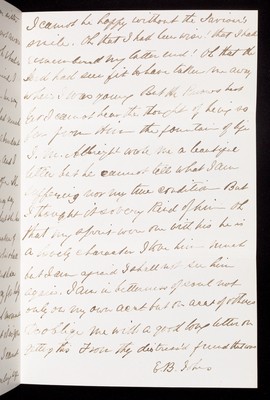 I cannot be happy without the Saviour's
smile. Oh that I had been wise! that I had
remembered my latter end! Oh that the
Lord had seen fit to have taken me away
when I was young But He knows best
but I cannot bear the thought of being so
far from Him the fountain of life
J. M. Albright wrote me a beautiful
letter but he cannot tell what I am
suffering nor my true condition But
I thought it so very kind of him Oh
that my spirit were one with his he is
a lovely character I love him much
but I am afraid I shall not see him
again. I am in bitterness of soul not
only on my own acct but on acct of others
oblige me with a good long letter on
getting this From thy distressed friend that was
E. B.